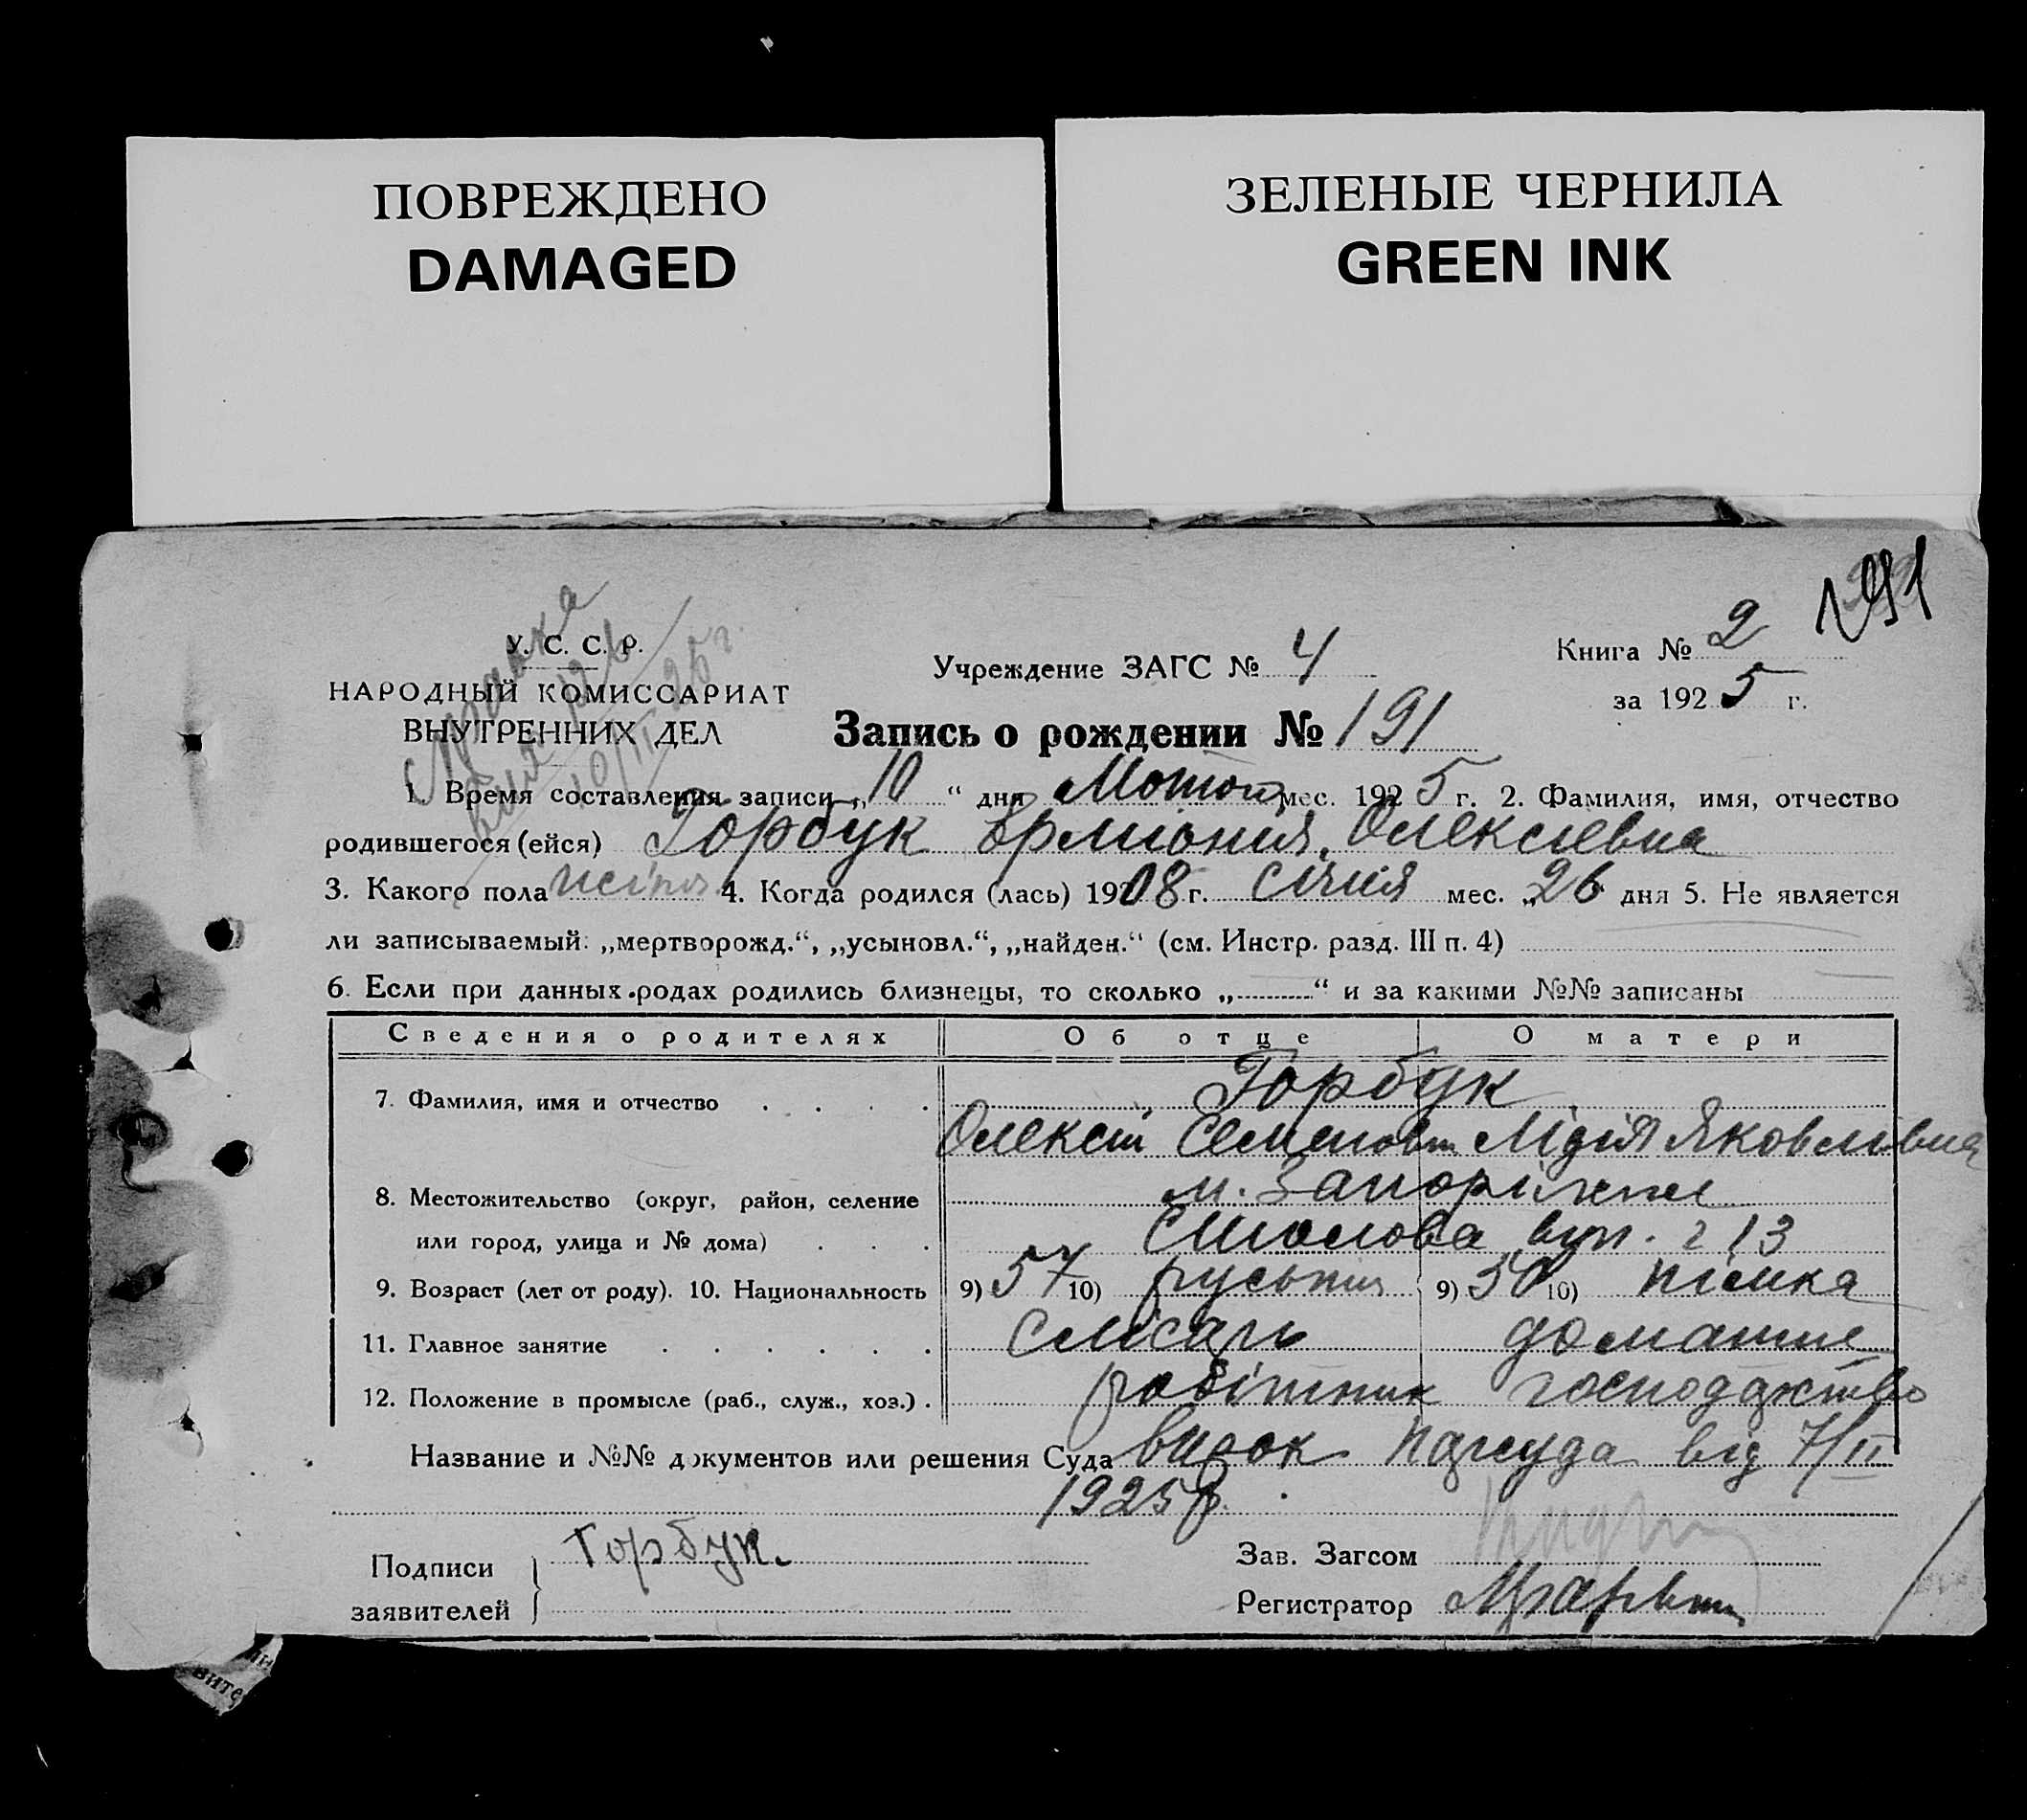 ПОВРЕЖДЕНО
DAMAGED
ЗЕЛЕНЫЕ ЧЕРНИЛА
GREEN INK
191
У. С. С. Р.
НАРОДНЫЙ КОМИССАРИАТ
ВНУТРЕННИХ ДЕЛ
Учреждение ЗАГС № 4
Книга № 2
за 1925 г.
Запись о рождении № 191
10/II 25 г.
1. Время составления записи „10“ дня мес. 1925 г. 2. Фамилия, имя, отчество
родившегося (ейся) Горбук Ерміонія Олексієвна
3. Какого пола 4. Когда родился (лась) 1908 г. січня мес. „26 дня 5. Не является
ли записываемый: „мертворожд.“, „усыновл.“, „найден.“ (см. Инстр. разд. III п. 4)
6. Если при данных родах родились близнецы, то сколько „ “ и за какими №№ записаны
Сведения о родителях Об отце О матери
7. Фамилия, имя и отчество . . . . Горбук
Олексій Семенович Лідія Яковлівна
8. Местожительство (округ, район, селение м. Запоріжжя
или город, улица и № дома) . . . вул. 13
9. Возраст (лет от роду). 10. Национальность 9) 57 10) руський 9) 50 10) німка
11. Главное занятие . . . . . . слюсарь домашнє
12. Положение в промысле (раб., служ., хоз.) . робітник господарство
Название и №№ документов или решения Суда висок нарсуда від 7/II
1925 р.
Подписи
заявителей
Горбук.
Зав. Загсом
Регистратор
вите